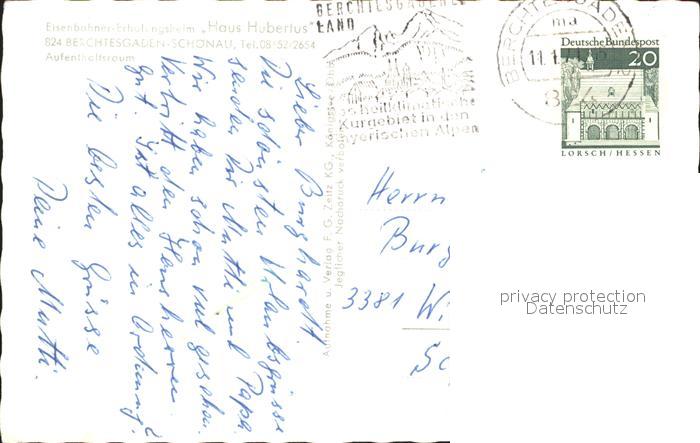 Eisenbahner-Erholungsheim „Haus Hubertus"
824 BERCHTESGADEN-SCHÖNAU, Tel. 08652/2654
Aufenthaltsraum
Lieber Burghardt.
Die schönsten Urlaubsgrüsse
senden Dir Mutti und Papa.
Wir haben schon viel gesehen.
Vertritt den Hausherren
gut. Ist alles in Ordnung?
Die besten Grüsse
Deine Mutti.
Aufnahme u. Verlag F. G. Zeitz KG., Königssee/Obb.
Jeglicher Nachdruck verboten
BERCHTESGADENER
LAND
heilklimatische
Kurgebiet in den
Bayerischen Alpen
BERCHTESGADEN
ma
11.1
8
Deutsche Bundespost
20
LORSCH/HESSEN
Herrn
Burg
3381 Wi
Sc
privacy protection
Datenschutz